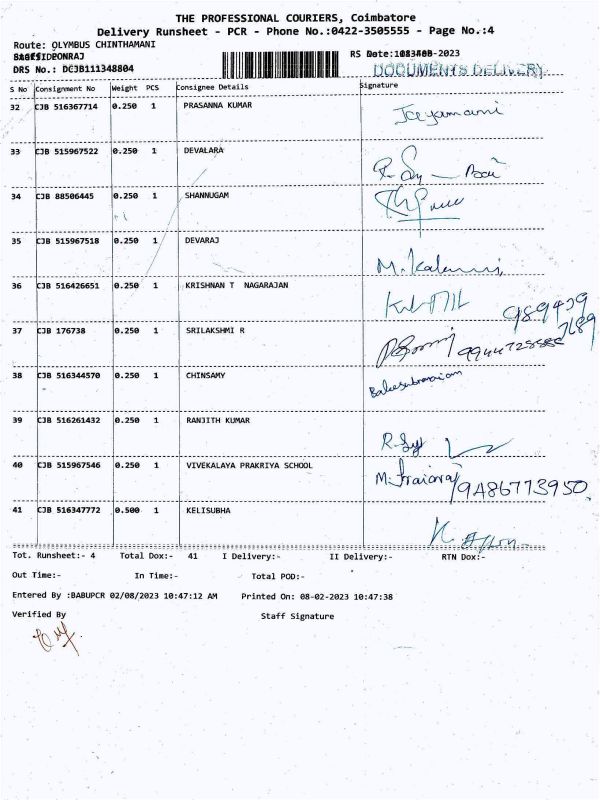 THE PROFESSIONAL COURIERS, Coimbatore
Delivery Runsheet - PCR - Phone No.:0422-3505555 - Page No.:4
Route: OLYMBUS CHINTHAMANI
RS Date: -2023
DRS No.: DCJB111348804
DOCUMENTS DELIVERY
S No Consignment No Weight PCS Consignee Details Signature
32 CJB 516367714 0.250 1 PRASANNA KUMAR Jeeyamani
33 CJB 515967522 0.250 1 DEVALARA
34 CJB 88506445 0.250 1 SHANNUGAM
35 CJB 515967518 0.250 1 DEVARAJ
36 CJB 516426651 0.250 1 KRISHNAN T NAGARAJAN
37 CJB 176738 0.250 1 SRILAKSHMI R
38 CJB 516344570 0.250 1 CHINSAMY Balasubramaiam
39 CJB 516261432 0.250 1 RANJITH KUMAR
40 CJB 515967546 0.250 1 VIVEKALAYA PRAKRIYA SCHOOL
41 CJB 516347772 0.500 1 KELISUBHA
Tot. Runsheet:- 4 Total Dox:- 41 I Delivery:- II Delivery:- RTN Dox:-
Out Time:- In Time:- Total POD:-
Entered By :BABUPCR 02/08/2023 10:47:12 AM Printed On: 08-02-2023 10:47:38
Verified By Staff Signature